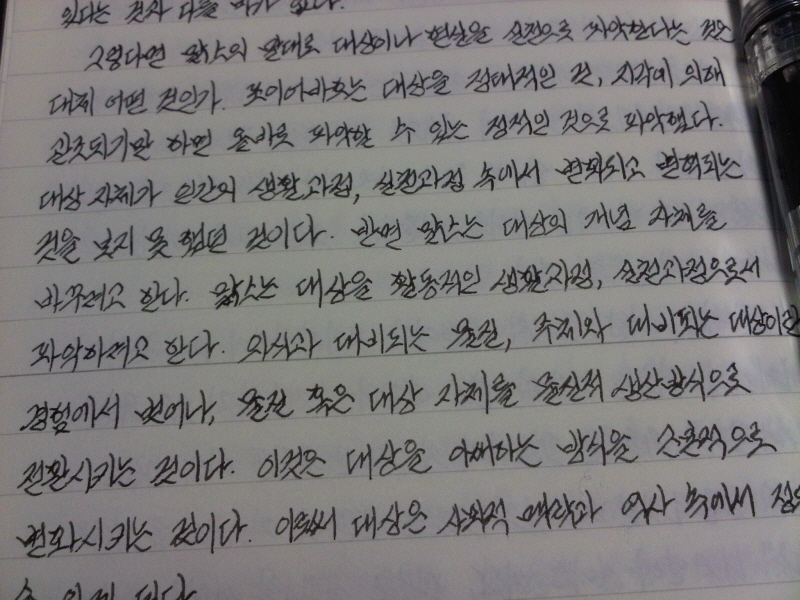 있다는 것과 다를 바가 없다.
그렇다면 맑스의 말대로 대상이나 현실을 실천으로 파악한다는 것은
대체 어떤 것인가. 포이어바흐는 대상을 정태적인 것, 지각에 의해
관조되기만 하면 올바로 파악할 수 있는 정적인 것으로 파악했다.
대상 자체가 인간의 생활과정, 실천과정 속에서 변화되고 변혁되는
것을 보지 못했던 것이다. 반면 맑스는 대상의 개념 자체를
바꾸려고 한다. 맑스는 대상을 활동적인 생활과정, 실천과정으로서
파악하려고 한다. 의식과 대비되는 물질, 주체와 대비되는 대상이란
경험에서 벗어나, 물질 혹은 대상 자체를 물질적 생산방식으로
전환시키는 것이다. 이것은 대상을 이해하는 방식을 근본적으로
변화시키는 것이다. 이로써 대상은 사회적 맥락과 역사 속에서
수 있게 된다.